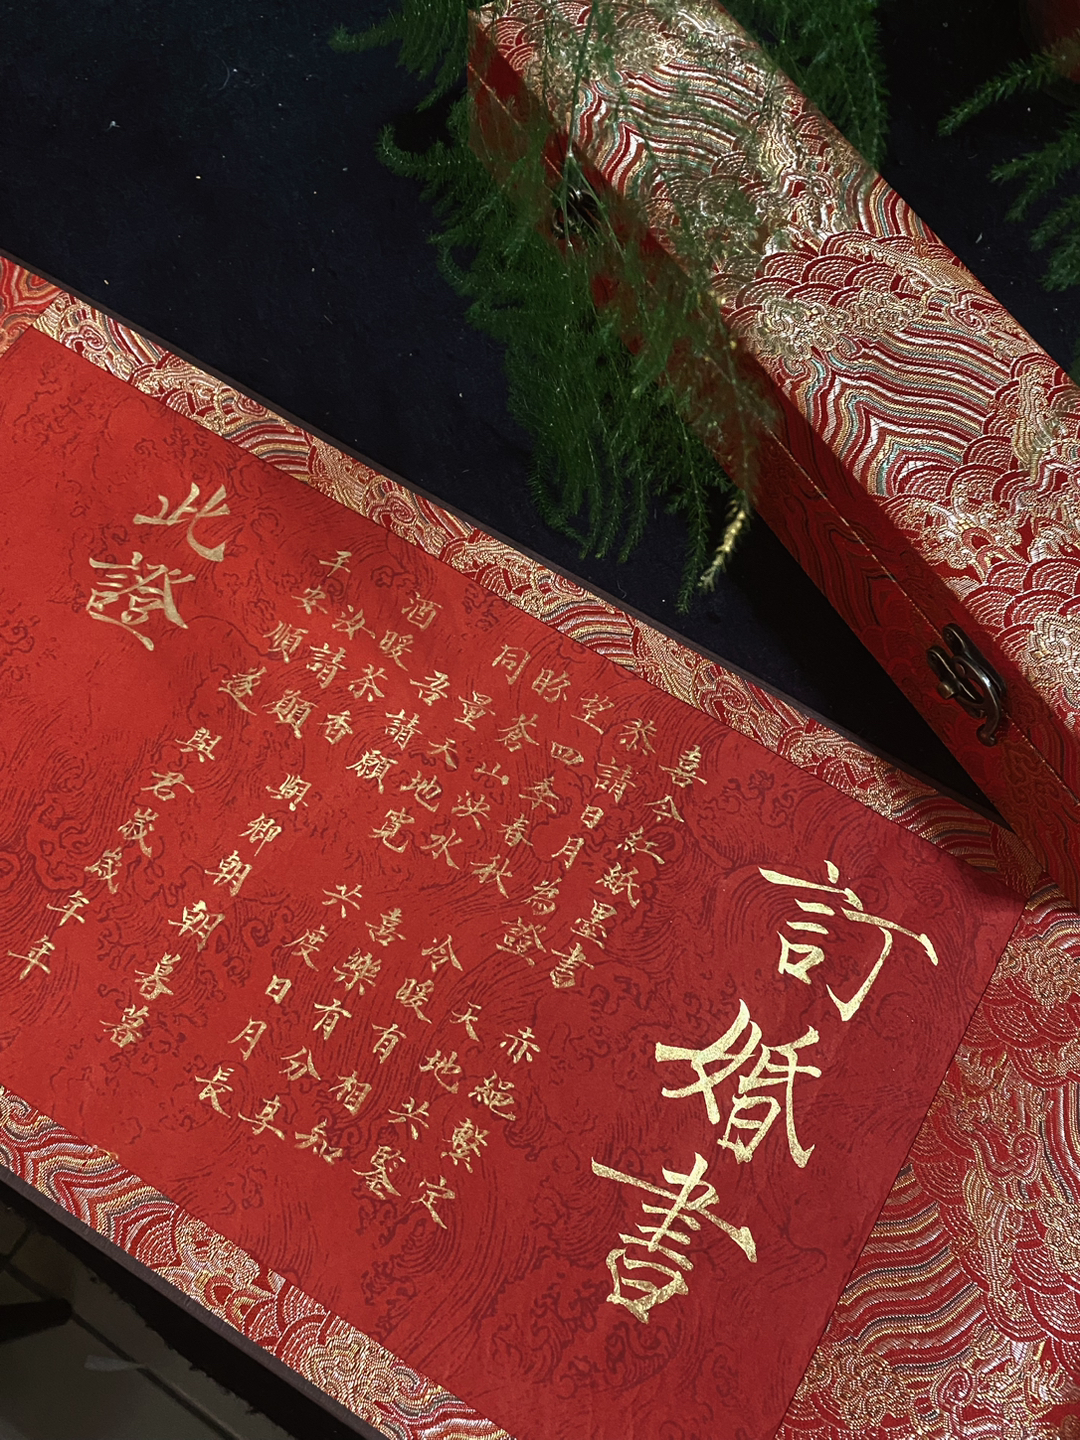 訂婚書
喜今紅紙墨書 赤繩繫定
恭請日月為證 天地共鑒
望四季春秋 今暖有相知
昐蒼山泱水 喜樂有分享
同量天地寬 共度日月長
吾請願
酒暖茶香 與卿朝朝暮暮
汝請願
平安順遂 與君歲歲年年
此證